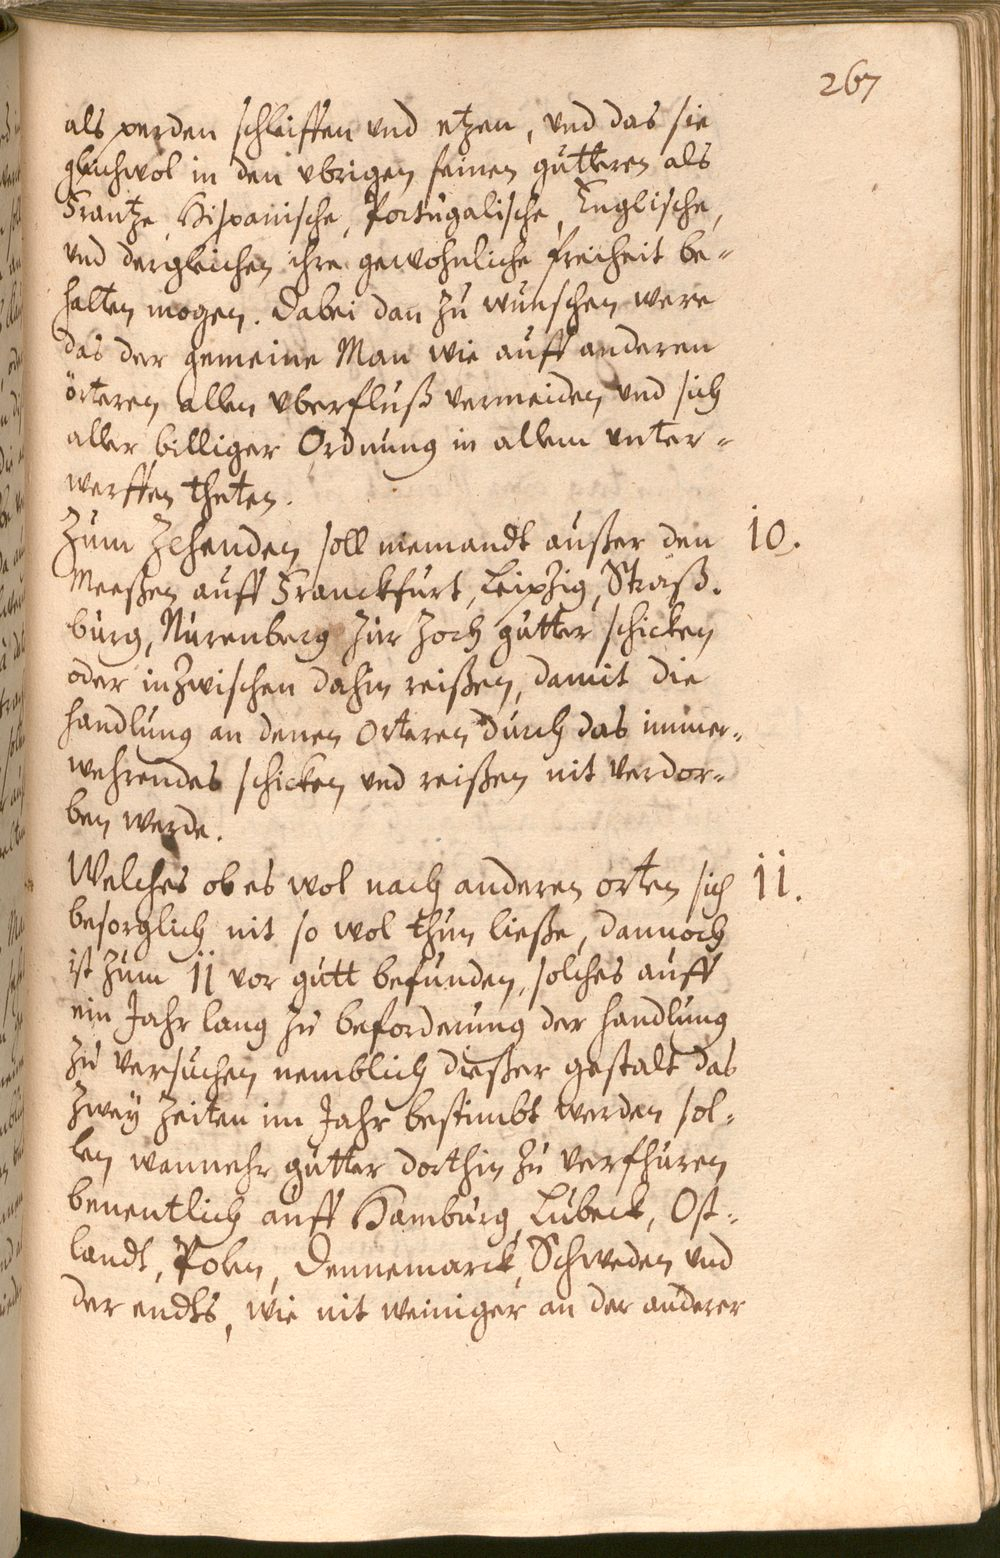 267
als perden schleiffen und etzen, und das sie
gleichwol in den ubrigen feinen gütteren als
Frantze, Hispanische, Portugalische, Englische,
und dergleichen ihre gewohnliche freiheit be-
halten mogen. Dabei dan zu wünschen were
das der gemeine Man wie auff anderen
örteren allen uberfluß vermeiden und sich
aller billiger Ordnung in allem unter-
werffen theten.
Zum Zehenden soll niemandt außer den 10.
Meeßen auff Franckfurt, Leipzig, Straß-
burg, Nürenberg zur Zoch gütter schicken
oder inzwischen dahin reißen, damit die
handlung an denen orteren durch das immer-
wehrendes schicken und reißen nit verdor-
ben werde.
Welches ob es wol nach anderen orten sich 11.
besorglich nit so wol thun ließe, dannoch
ist zum 11 vor gutt befunden, solches auff
ein Jahr lang zu beforderung der handlung
zu versuchen nemblich dießer gestalt das
zwey Zeiten im Jahr bestimbt werden sol-
len wannehr gütter dorthin zu verfhüren
benentlich auff Hamburg, Lübeck, Ost-
landt, Polen, Dennemarck, Schweden und
der endts, wie nit weiniger an der anderer